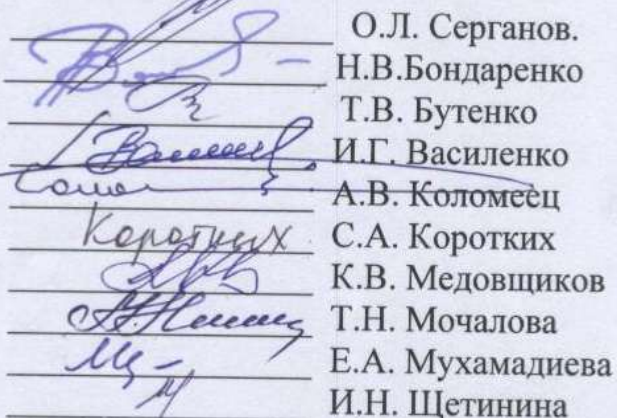 О.Л. Серганов.
Н.В.Бондаренко
Т.В. Бутенко
И.Г. Василенко
А.В. Коломеец
Коротких С.А. Коротких
К.В. Медовщиков
Т.Н. Мочалова
Е.А. Мухамадиева
И.Н. Щетинина